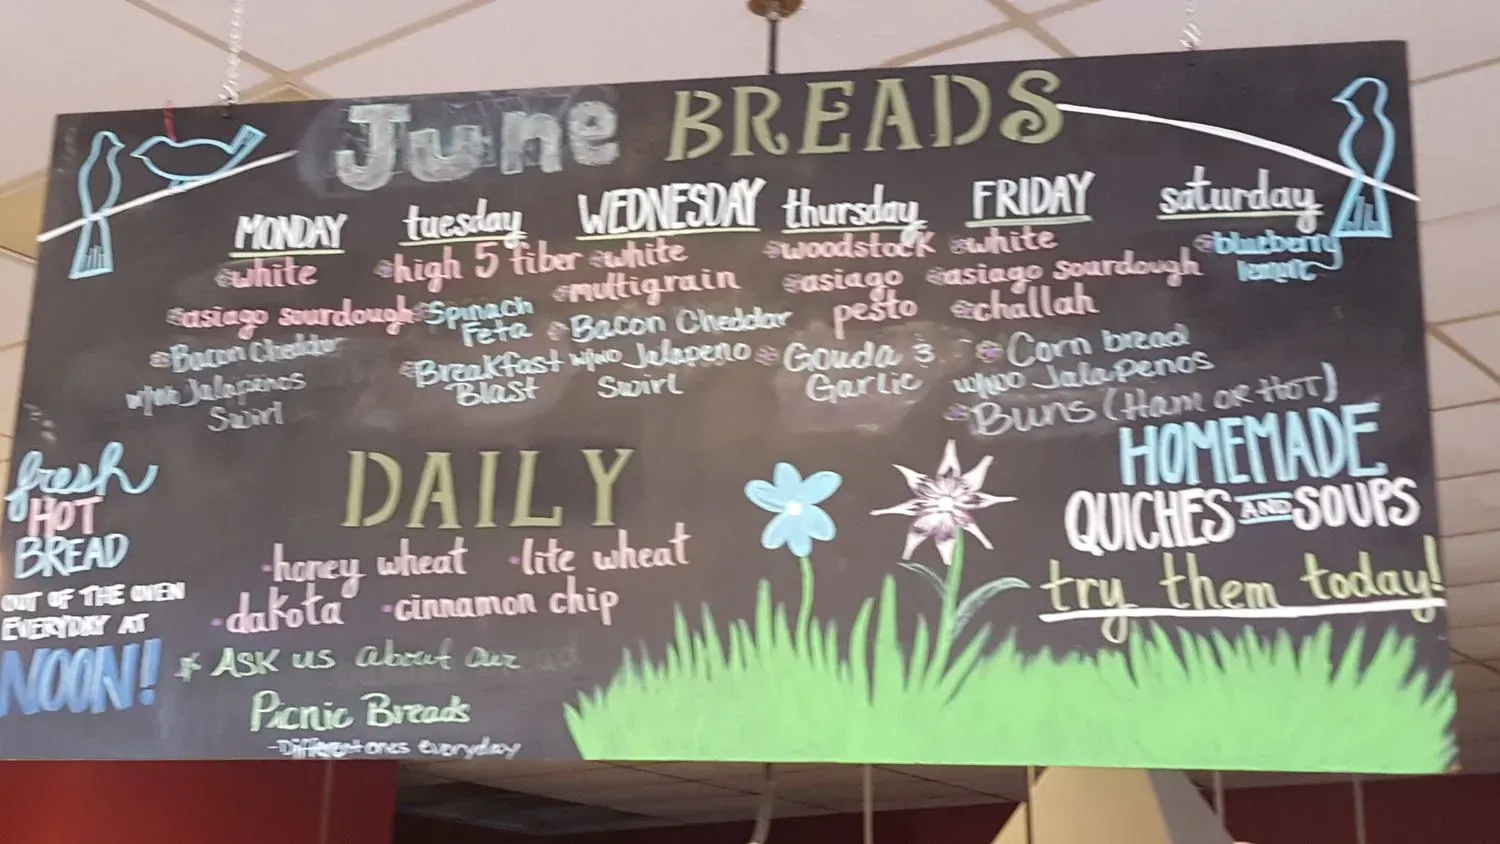 June BREADS
MONDAY
white
asiago sourdough
Bacon Cheddar
w/wo Jalapenos
Swirl
tuesday
high 5 fiber
Spinach
Feta
Breakfast
Blast
WEDNESDAY
white
multigrain
Bacon Cheddar
w/wo Jalapeno
Swirl
thursday
woodstock
asiago
pesto
Gouda &
Garlic
FRIDAY
white
asiago sourdough
challah
Corn bread
w/wo Jalapenos
Buns (Ham or Hot)
saturday
blueberry
lemon
fresh
HOT
BREAD
OUT OF THE OVEN
EVERYDAY AT
NOON!
DAILY
honey wheat · lite wheat
dakota · cinnamon chip
* ASK us about our
Picnic Breads
- Different ones everyday
HOMEMADE
QUICHES AND SOUPS
try them today!